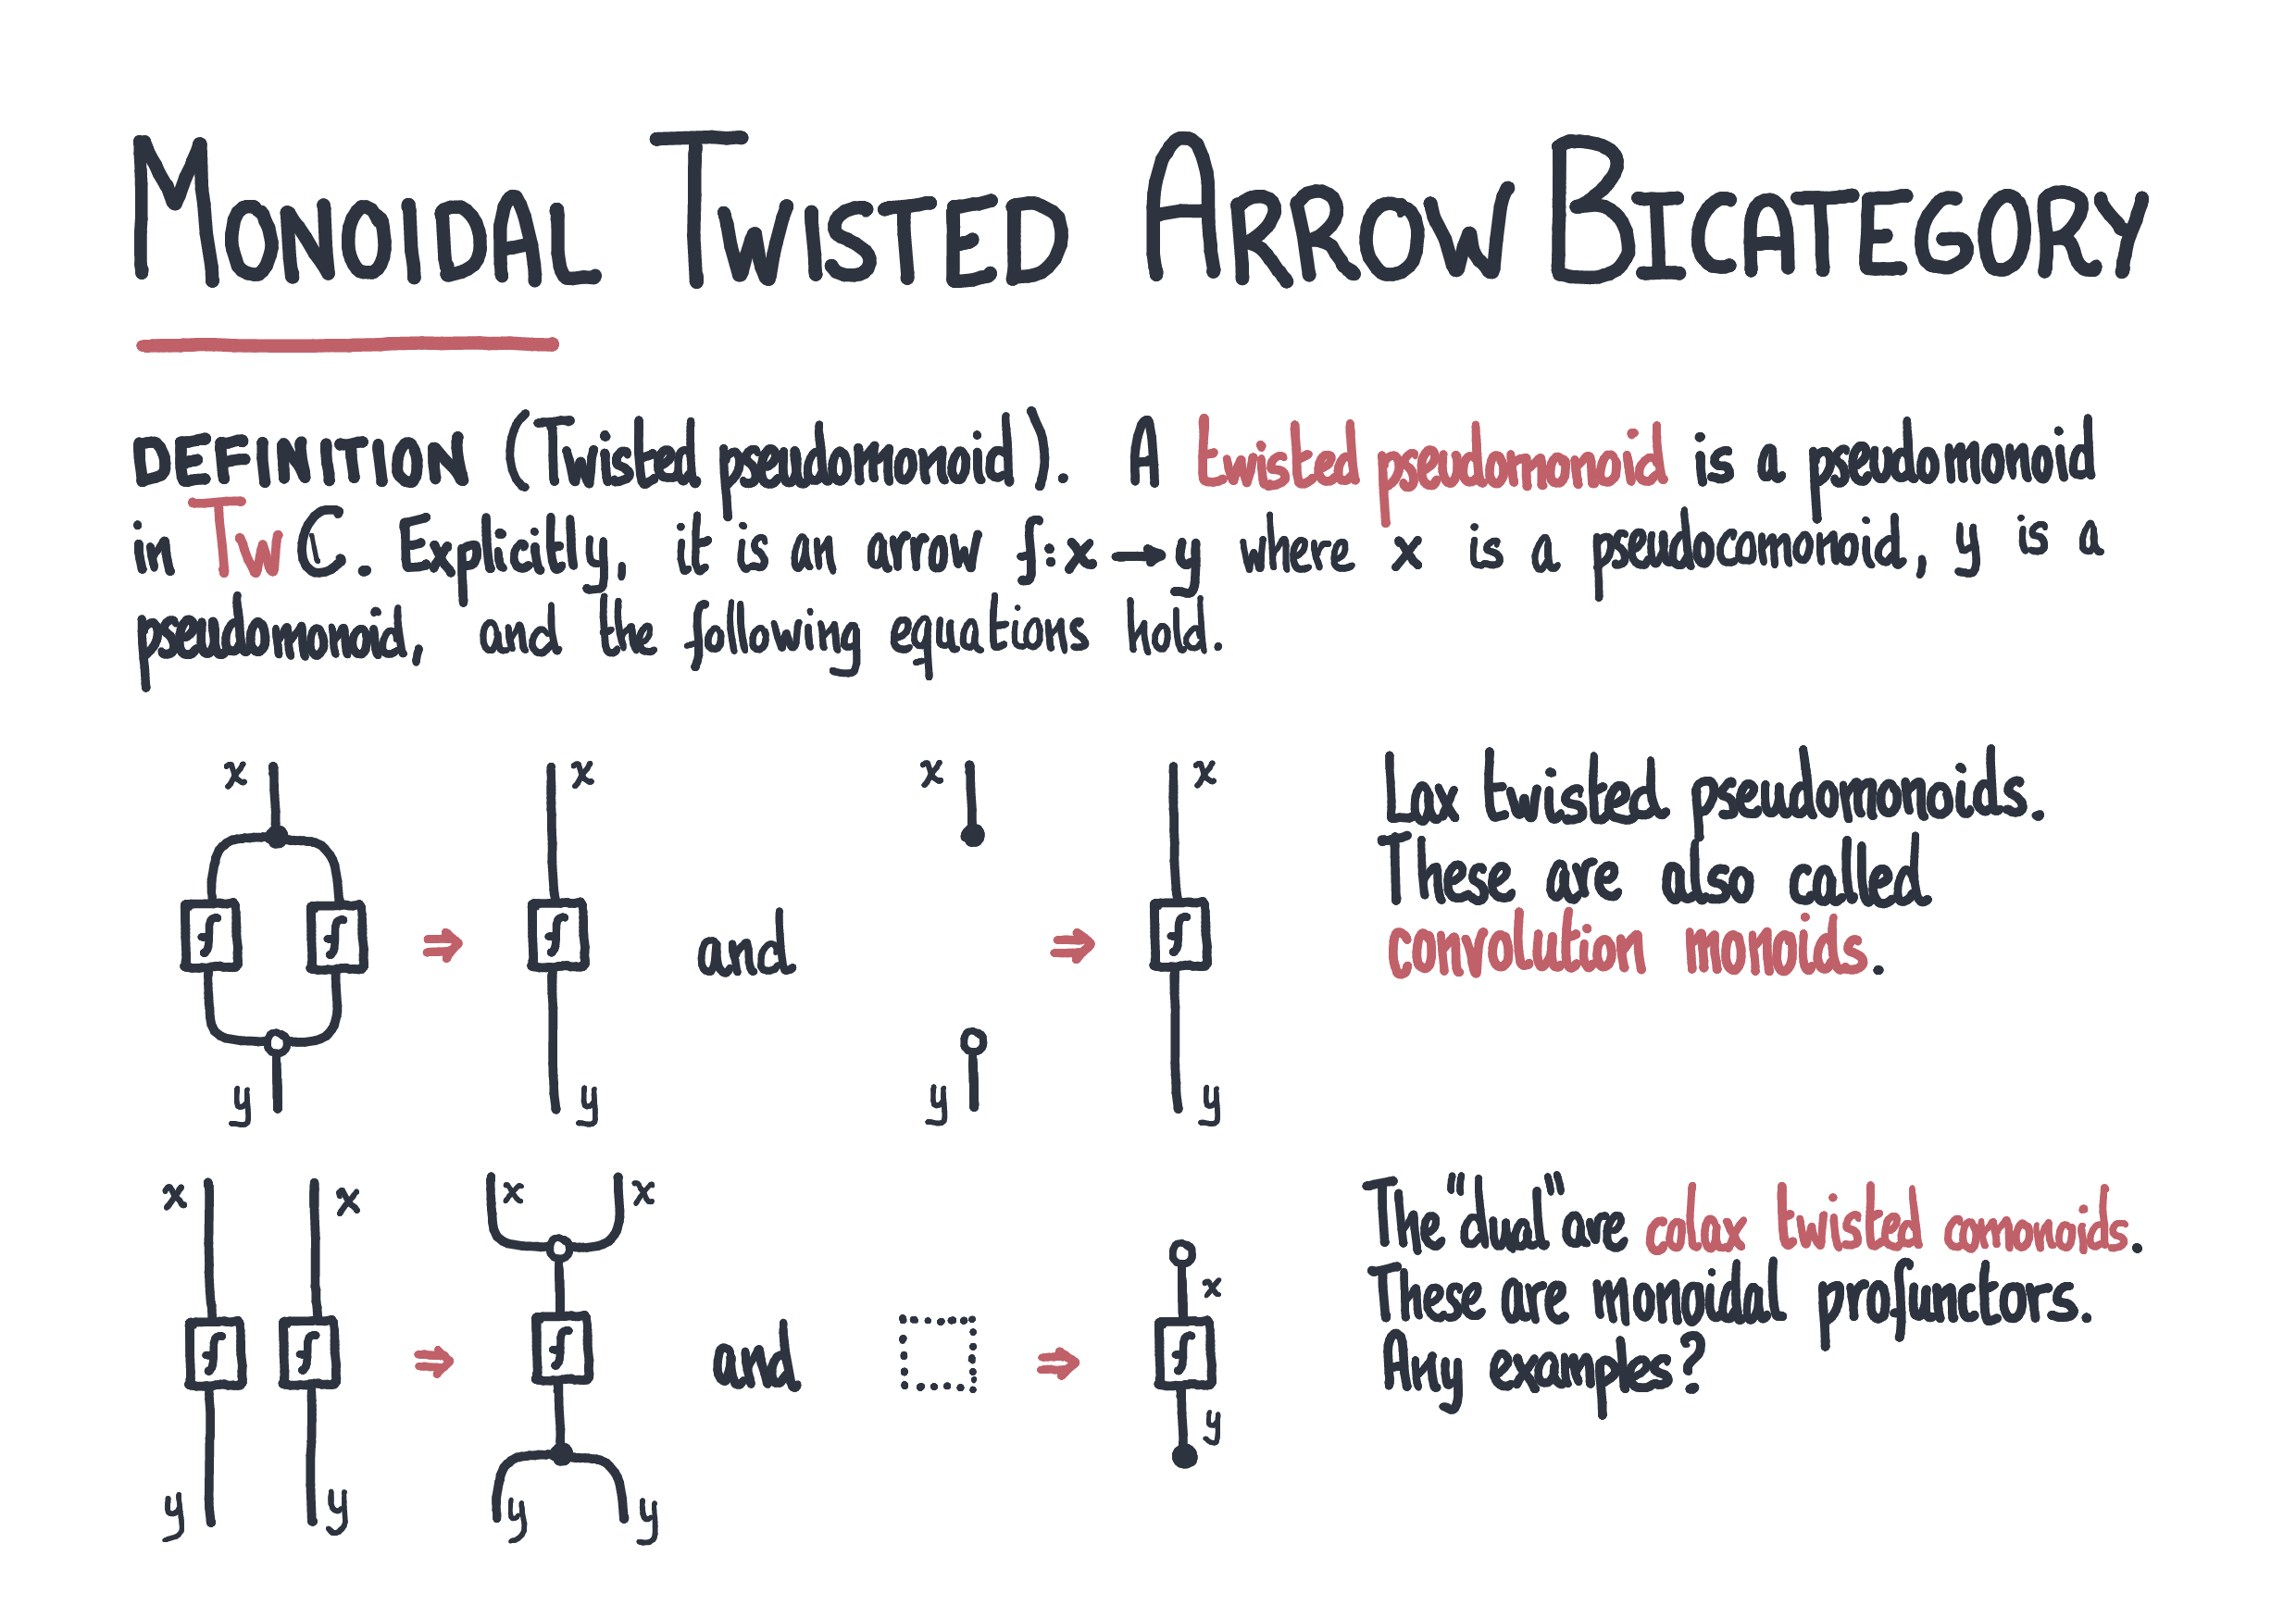 MONOIDAL TWISTED ARROW BICATEGORY
DEFINITION (Twisted pseudomonoid). A twisted pseudomonoid is a pseudomonoid
in Tw ℂ. Explicitly, it is an arrow f: x → y where x is a pseudocomonoid, y is a
pseudomonoid, and the following equations hold.
x x x x
f f ⇒ f and ⇒ f
y y y y
Lax twisted pseudomonoids.
These are also called
convolution monoids.
x x x x
x
f f ⇒ f and ⇒ f
y
y y y y
The "dual" are colax twisted comonoids.
These are monoidal profunctors.
Any examples?